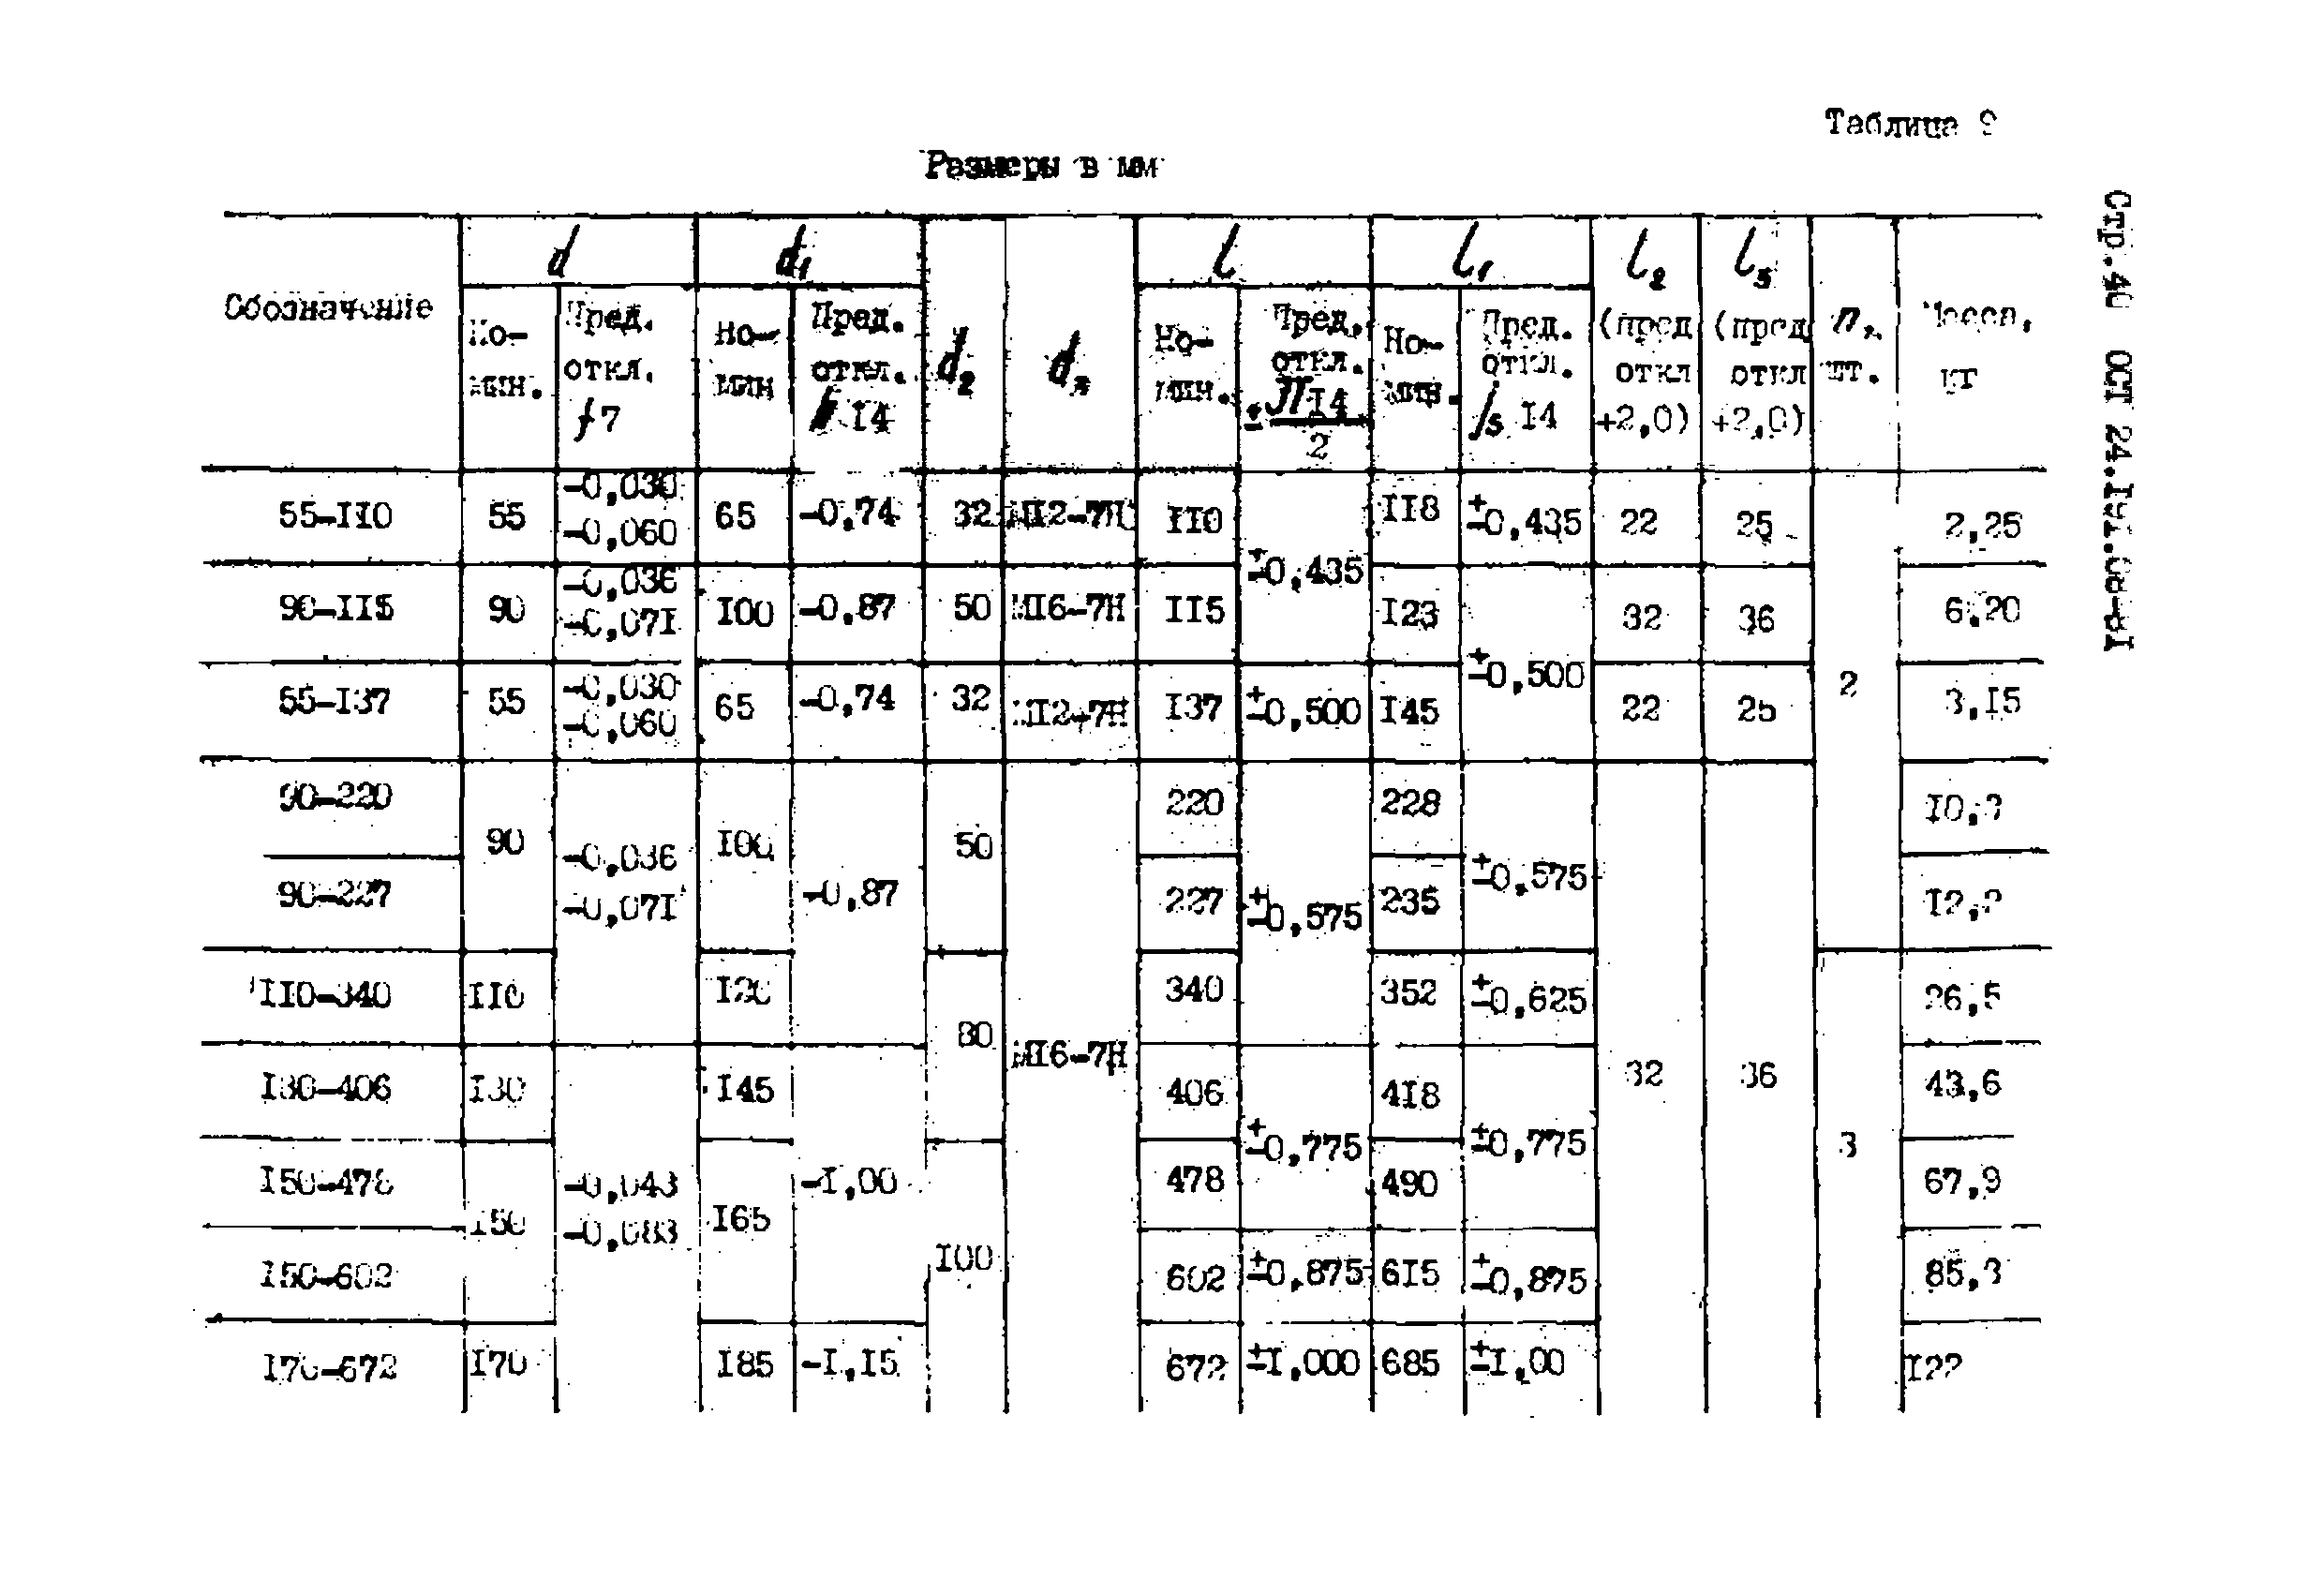 Таблица 9
Размеры в мм
Стр.40 ОСТ 24.
Обозначение d d₁ d₂ l l₁ l₂ l₃ n, Масса,
Но- Пред. Но- Пред. Но- Пред. Но- Пред. (пред (пред шт. кг
мин. откл. мин откл. мин. откл. мин. откл. откл откл
f7 14 ± 14/2 js 14 +2,0) +2,0)
55-110 55 -0,030 -0,060 65 -0,74 32 М12-7Н 110 ±0,435 118 ±0,435 22 25 2 2,25
90-115 90 -0,036 -0,071 100 -0,87 50 М16-7Н 115 123 ±0,500 32 36 6,20
55-137 55 -0,030 -0,060 65 -0,74 32 М12-7Н 137 ±0,500 145 22 25 3,15
90-220 90 -0,036 -0,071 100 -0,87 50 М16-7Н 220 ±0,575 228 ±0,575 32 36 10,3
90-227 227 235
110-340 110 120 80 340 352 ±0,625 3 26,5
130-406 130 -0,043 -0,083 145 -1,00 406 ±0,775 418 ±0,775 43,6
150-478 150 165 100 478 490 67,9
150-602 602 ±0,875 615 ±0,875 85,3
170-672 170 185 -1,15 672 ±1,000 685 ±1,00 122